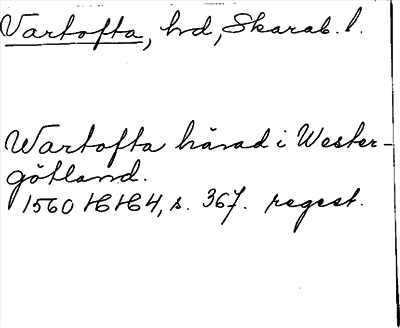 Vartofta, hd, Skarab. l.
Wartofta härad i Wester-
götland.
1560 HH 4, s. 367. regest.